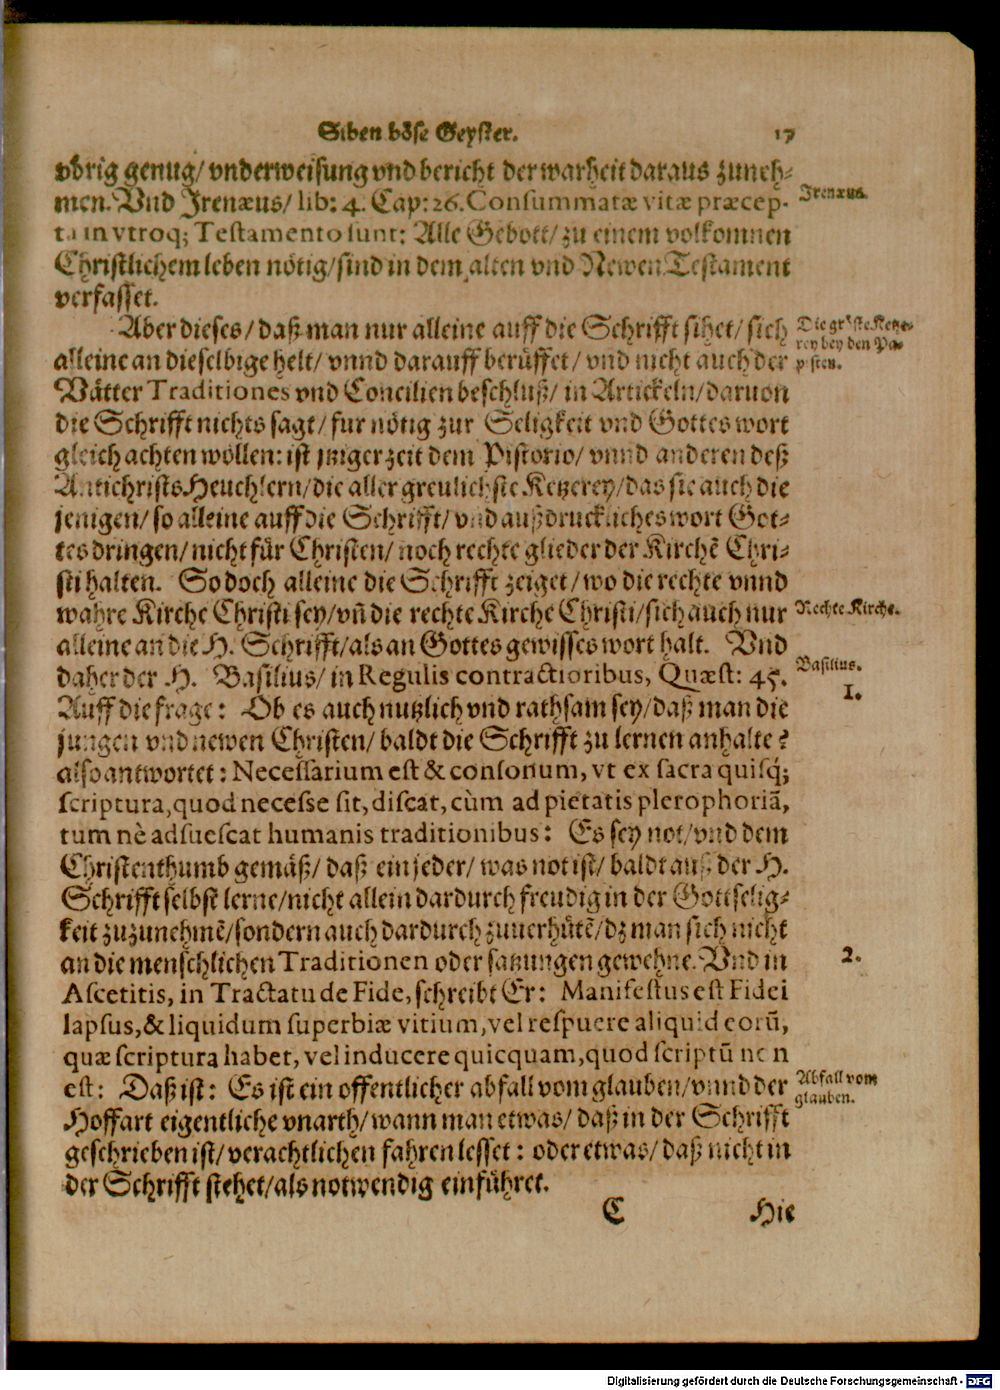 Siben böse Geyster. 17
vbrig genug/ vnderweisung vnd bericht der warheit daraus zuneh-
men. Vnd Irenæus/ lib: 4. Cap: 26. Consummatæ vitæ præcep-
Irenæus.
ta in vtroq; Testamento sunt: Alle Gebott/ zu einem volkomnen
Christlichem leben nötig/ sind in dem alten vnd Newen Testament
verfasset.
Aber dieses/ daß man nur alleine auff die Schrifft sihet/ sich
Die gröste Ketze-
rey bey den Pa-
pisten.
alleine an dieselbige helt/ vnnd darauff berüffet/ vnd nicht auch der
Vätter Traditiones vnd Concilien beschluß/ in Artickeln/ daruon
die Schrifft nichts sagt/ fur nötig zur Seligkeit vnd Gottes wort
gleich achten wöllen: ist jtziger zeit dem Pistorio/ vnnd anderen deß
Antichrists Heuchlern/ die aller greulichste Ketzerey/ das sie auch die
jenigen/ so alleine auff die Schrifft/ vnd außdruckliches wort Got-
tes dringen/ nicht für Christen/ noch rechte glieder der Kirchē Chri-
sti halten. So doch alleine die Schrifft zeiget/ wo die rechte vnnd
wahre Kirche Christi sey/ vñ die rechte Kirche Christi/ sich auch nur
Rechte Kirche.
alleine an die H. Schrifft/ als an Gottes gewisses wort halt. Vnd
daher der H. Basilius/ in Regulis contractioribus, Quæst: 45.
Basilius.
1.
Auff die frage: Ob es auch nutzlich vnd rathsam sey/ daß man die
jungen vnd newen Christen/ baldt die Schrifft zu lernen anhalte?
also antwortet: Necessarium est & consonum, vt ex sacra quisq́;
scriptura, quod necesse sit, discat, cùm ad pietatis plerophoriā,
tum nè adsuescat humanis traditionibus: Es sey not/ vnd dem
Christenthumb gemäß/ daß ein jeder/ was not ist/ baldt auß der H.
Schrifft selbst lerne/ nicht allein dardurch freudig in der Gottselig-
keit zuzunehmē/ sondern auch dardurch zuuerhütē/ dz man sich nicht
an die menschlichen Traditionen oder satzungen gewehne. Vnd in
2.
Ascetitis, in Tractatu de Fide, schreibt Er: Manifestus est Fidei
lapsus, & liquidum superbiæ vitium, vel respuere aliquid eorū,
quæ scriptura habet, vel inducere quicquam, quod scriptū non
est: Daß ist: Es ist ein offentlicher abfall vom glauben/ vnnd der
Abfall vom
glauben.
Hoffart eigentliche vnarth/ wann man etwas/ daß in der Schrifft
geschrieben ist/ verachtlichen fahren lesset: oder etwas/ daß nicht in
der Schrifft stehet/ als notwendig einführet.
C Hie
Digitalisierung gefördert durch die Deutsche Forschungsgemeinschaft - DFG